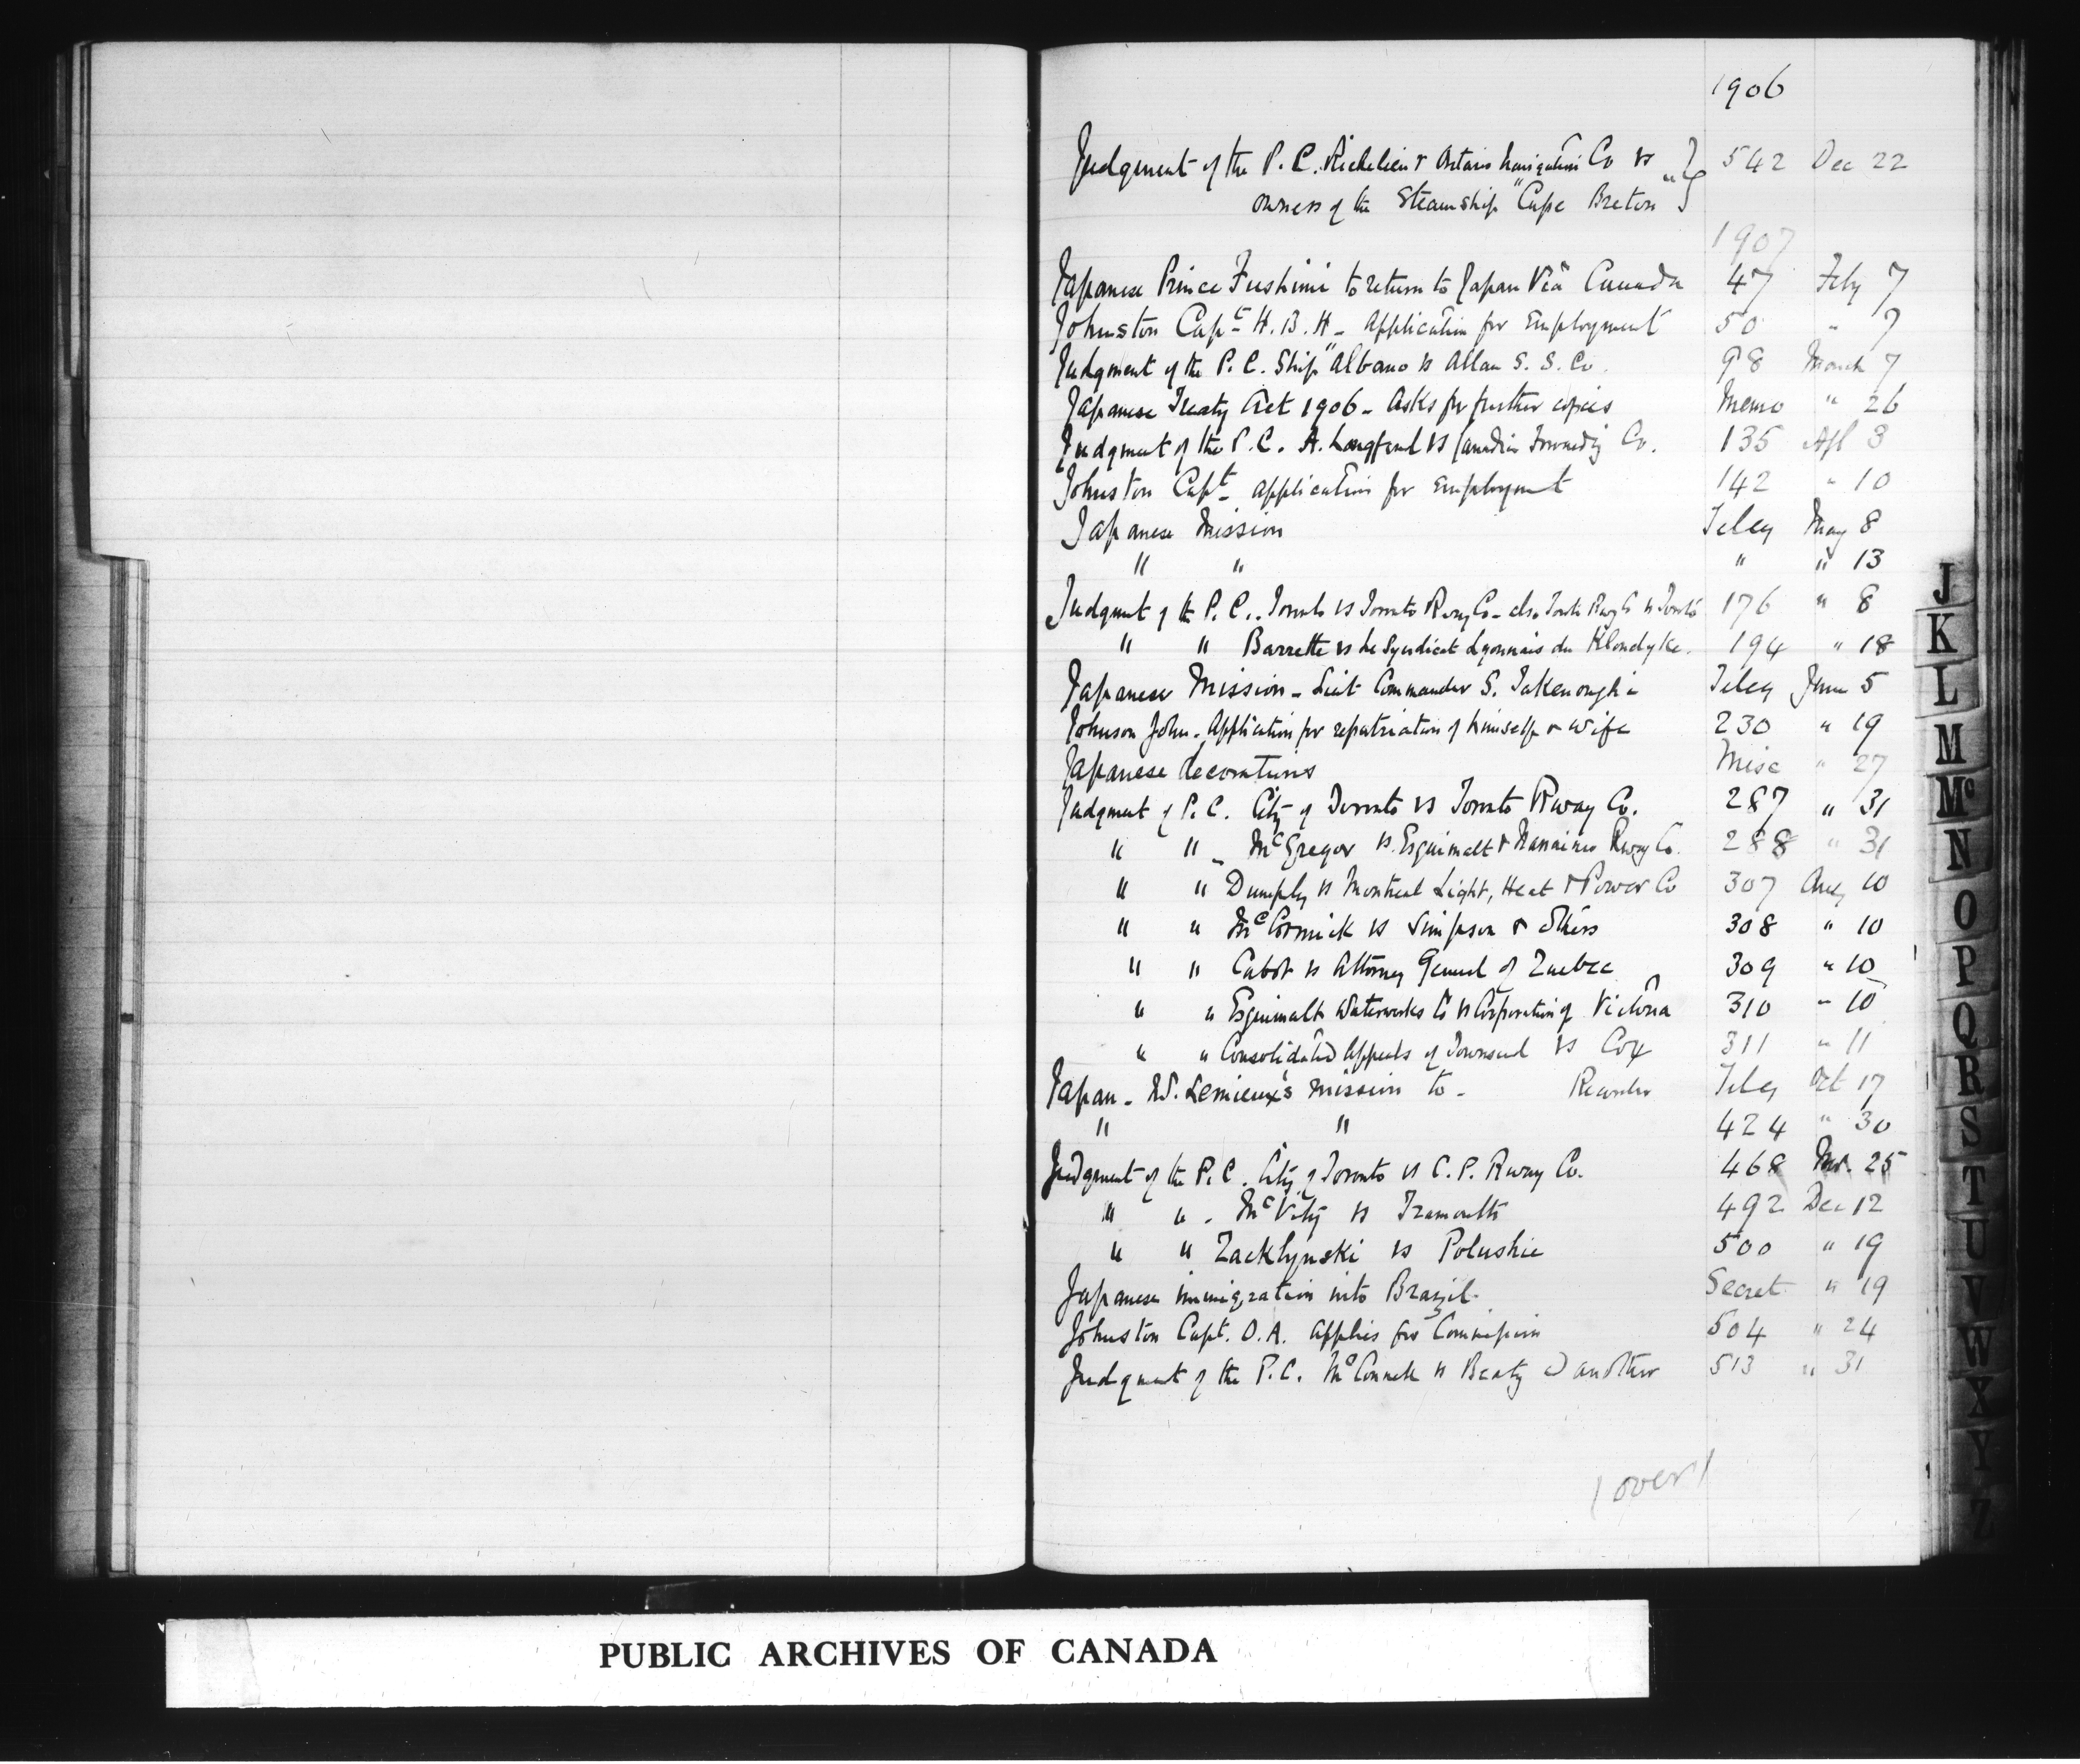 1906
Judgment of the P. C. Richelieu & Ontario Navigation Co vs 542 Dec 22
owners of the Steamship "Cape Breton"
1907
Japanese Prince Fushimi to return to Japan Via Canada 47 Feby 7
Johnston Capt H. B. H - Application for Employment 50 " 7
Judgment of the P. C. Ship "Albano vs Allan S. S. Co. 98 March 7
Japanese Treaty Act 1906 - Asks for further copies Memo " 26
Judgment of the P. C. A. vs Canadian Co. 135 Apl 3
Johnston Capt - application for Employment 142 " 10
Japanese Mission Teleg May 8
" " " " 13
Judgment of the P. C. Toronto vs Toronto Rway Co - also Toronto Rwy Co vs Toronto 176 " 8
" " Barrette vs Le Syndicat Lyonnais du Klondyke. 194 " 18
Japanese Mission - Lieut Commander S. Teleg June 5
Johnson John. Application for repatriation of himself & wife 230 " 19
Japanese decorations Misc " 27
Judgment of P. C. City of Toronto vs Toronto Rway Co. 287 " 31
" " - McGregor vs Esquimalt & Nanaimo Rway Co. 288 " 31
" " Dumphy vs Montreal Light, Heat & Power Co 307 Aug 10
" " McCormick vs Simpson & others 308 " 10
" " Cabot vs Attorney General of Quebec 309 " 10
" " Esquimalt Waterworks Co vs Corporation of Victoria 310 " 10
" " Consolidated Appeals of Townsend vs Cox 311 " 11
Japan - Mr. Lemieux's mission to - Teleg Oct 17
" " 424 " 30
Judgment of the P. C. City of Toronto vs C. P. Rway Co. 468 Nov. 25
" " - McVity vs 492 Dec 12
" " Zacklynski vs Polushie 500 " 19
Japanese immigration into Brazil. Secret " 19
Johnston Capt. O. A. applies for Commission 504 " 24
Judgment of the P. C. vs Beaty & another 513 " 31
(over)
J
K
L
M
Mc
N
O
P
Q
R
S
T
U
V
W
X
Y
Z
PUBLIC ARCHIVES OF CANADA